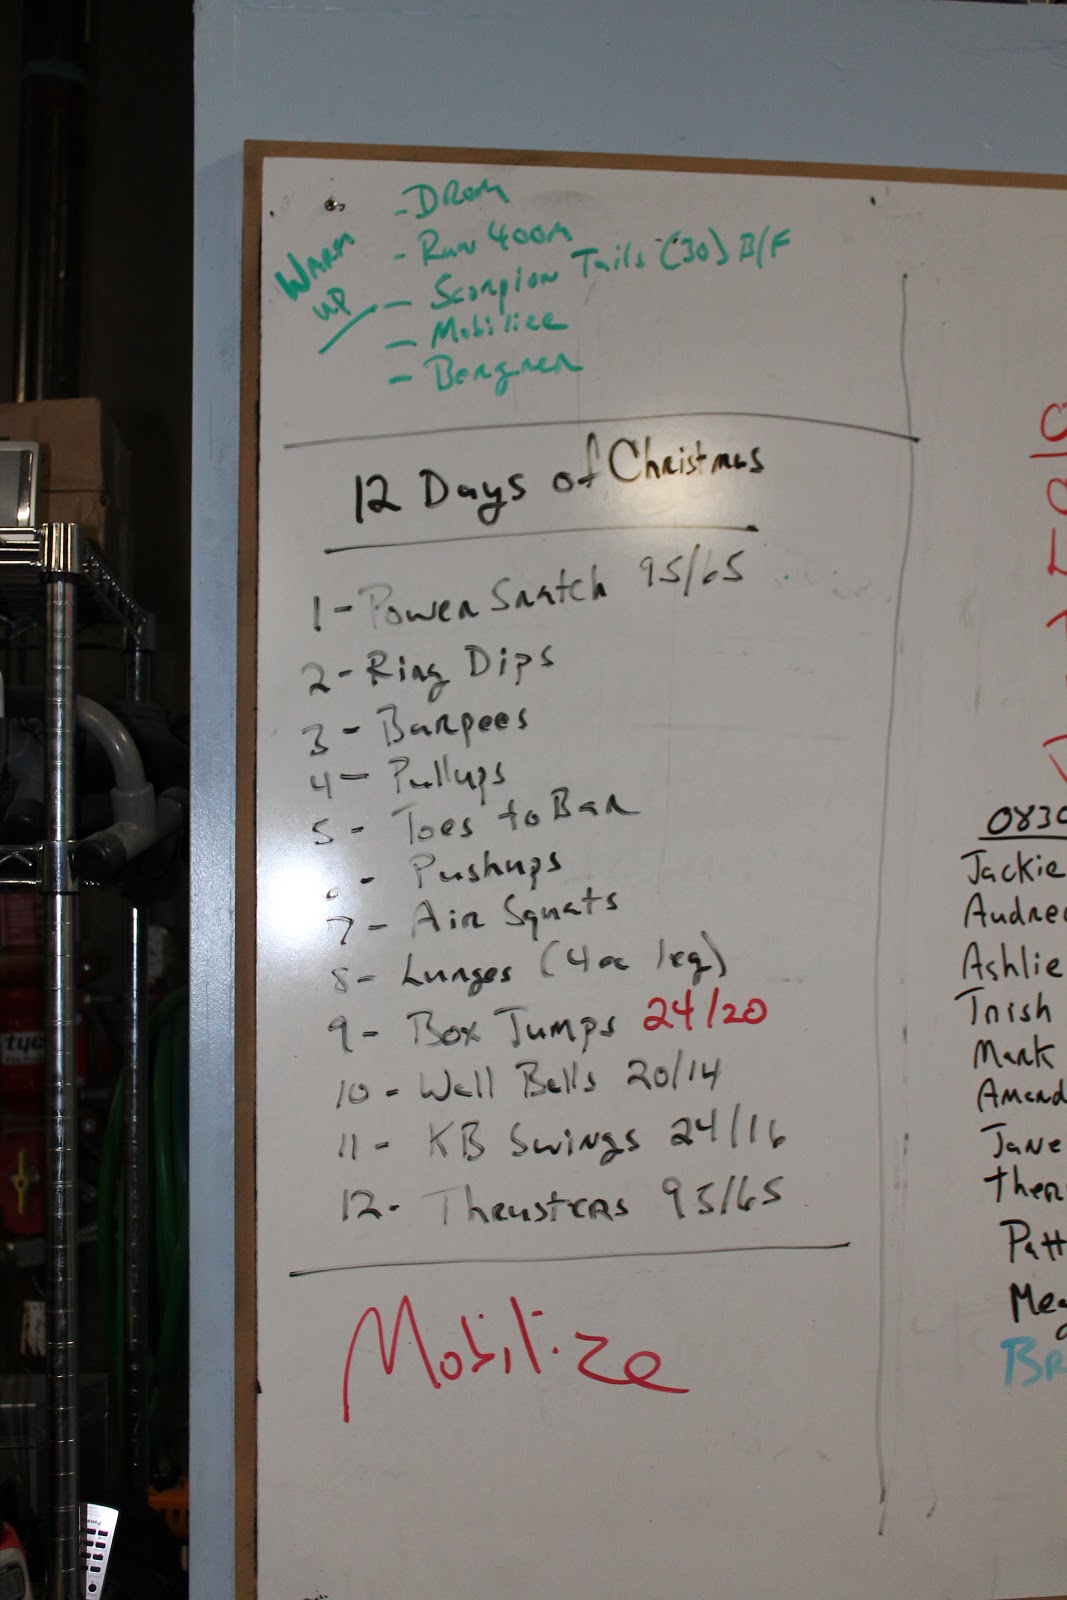 WARM
UP
- DROM
- Run 400m
- Scorpion Tails (30) B/F
- Mobilize
- Bergner
12 Days of Christmas
1 - Power Snatch 95/65
2 - Ring Dips
3 - Burpees
4 - Pullups
5 - Toes to Bar
- Pushups
7 - Air Squats
8 - Lunges (4 ea leg)
9 - Box Jumps 24/20
10 - Wall Balls 20/14
11 - KB Swings 24/16
12 - Thrusters 95/65
Mobilize
0830
Jackie
Audre
Ashlie
Trish
Mark
Amand
Jane
Ther
Patt
Meg
BR
tyc